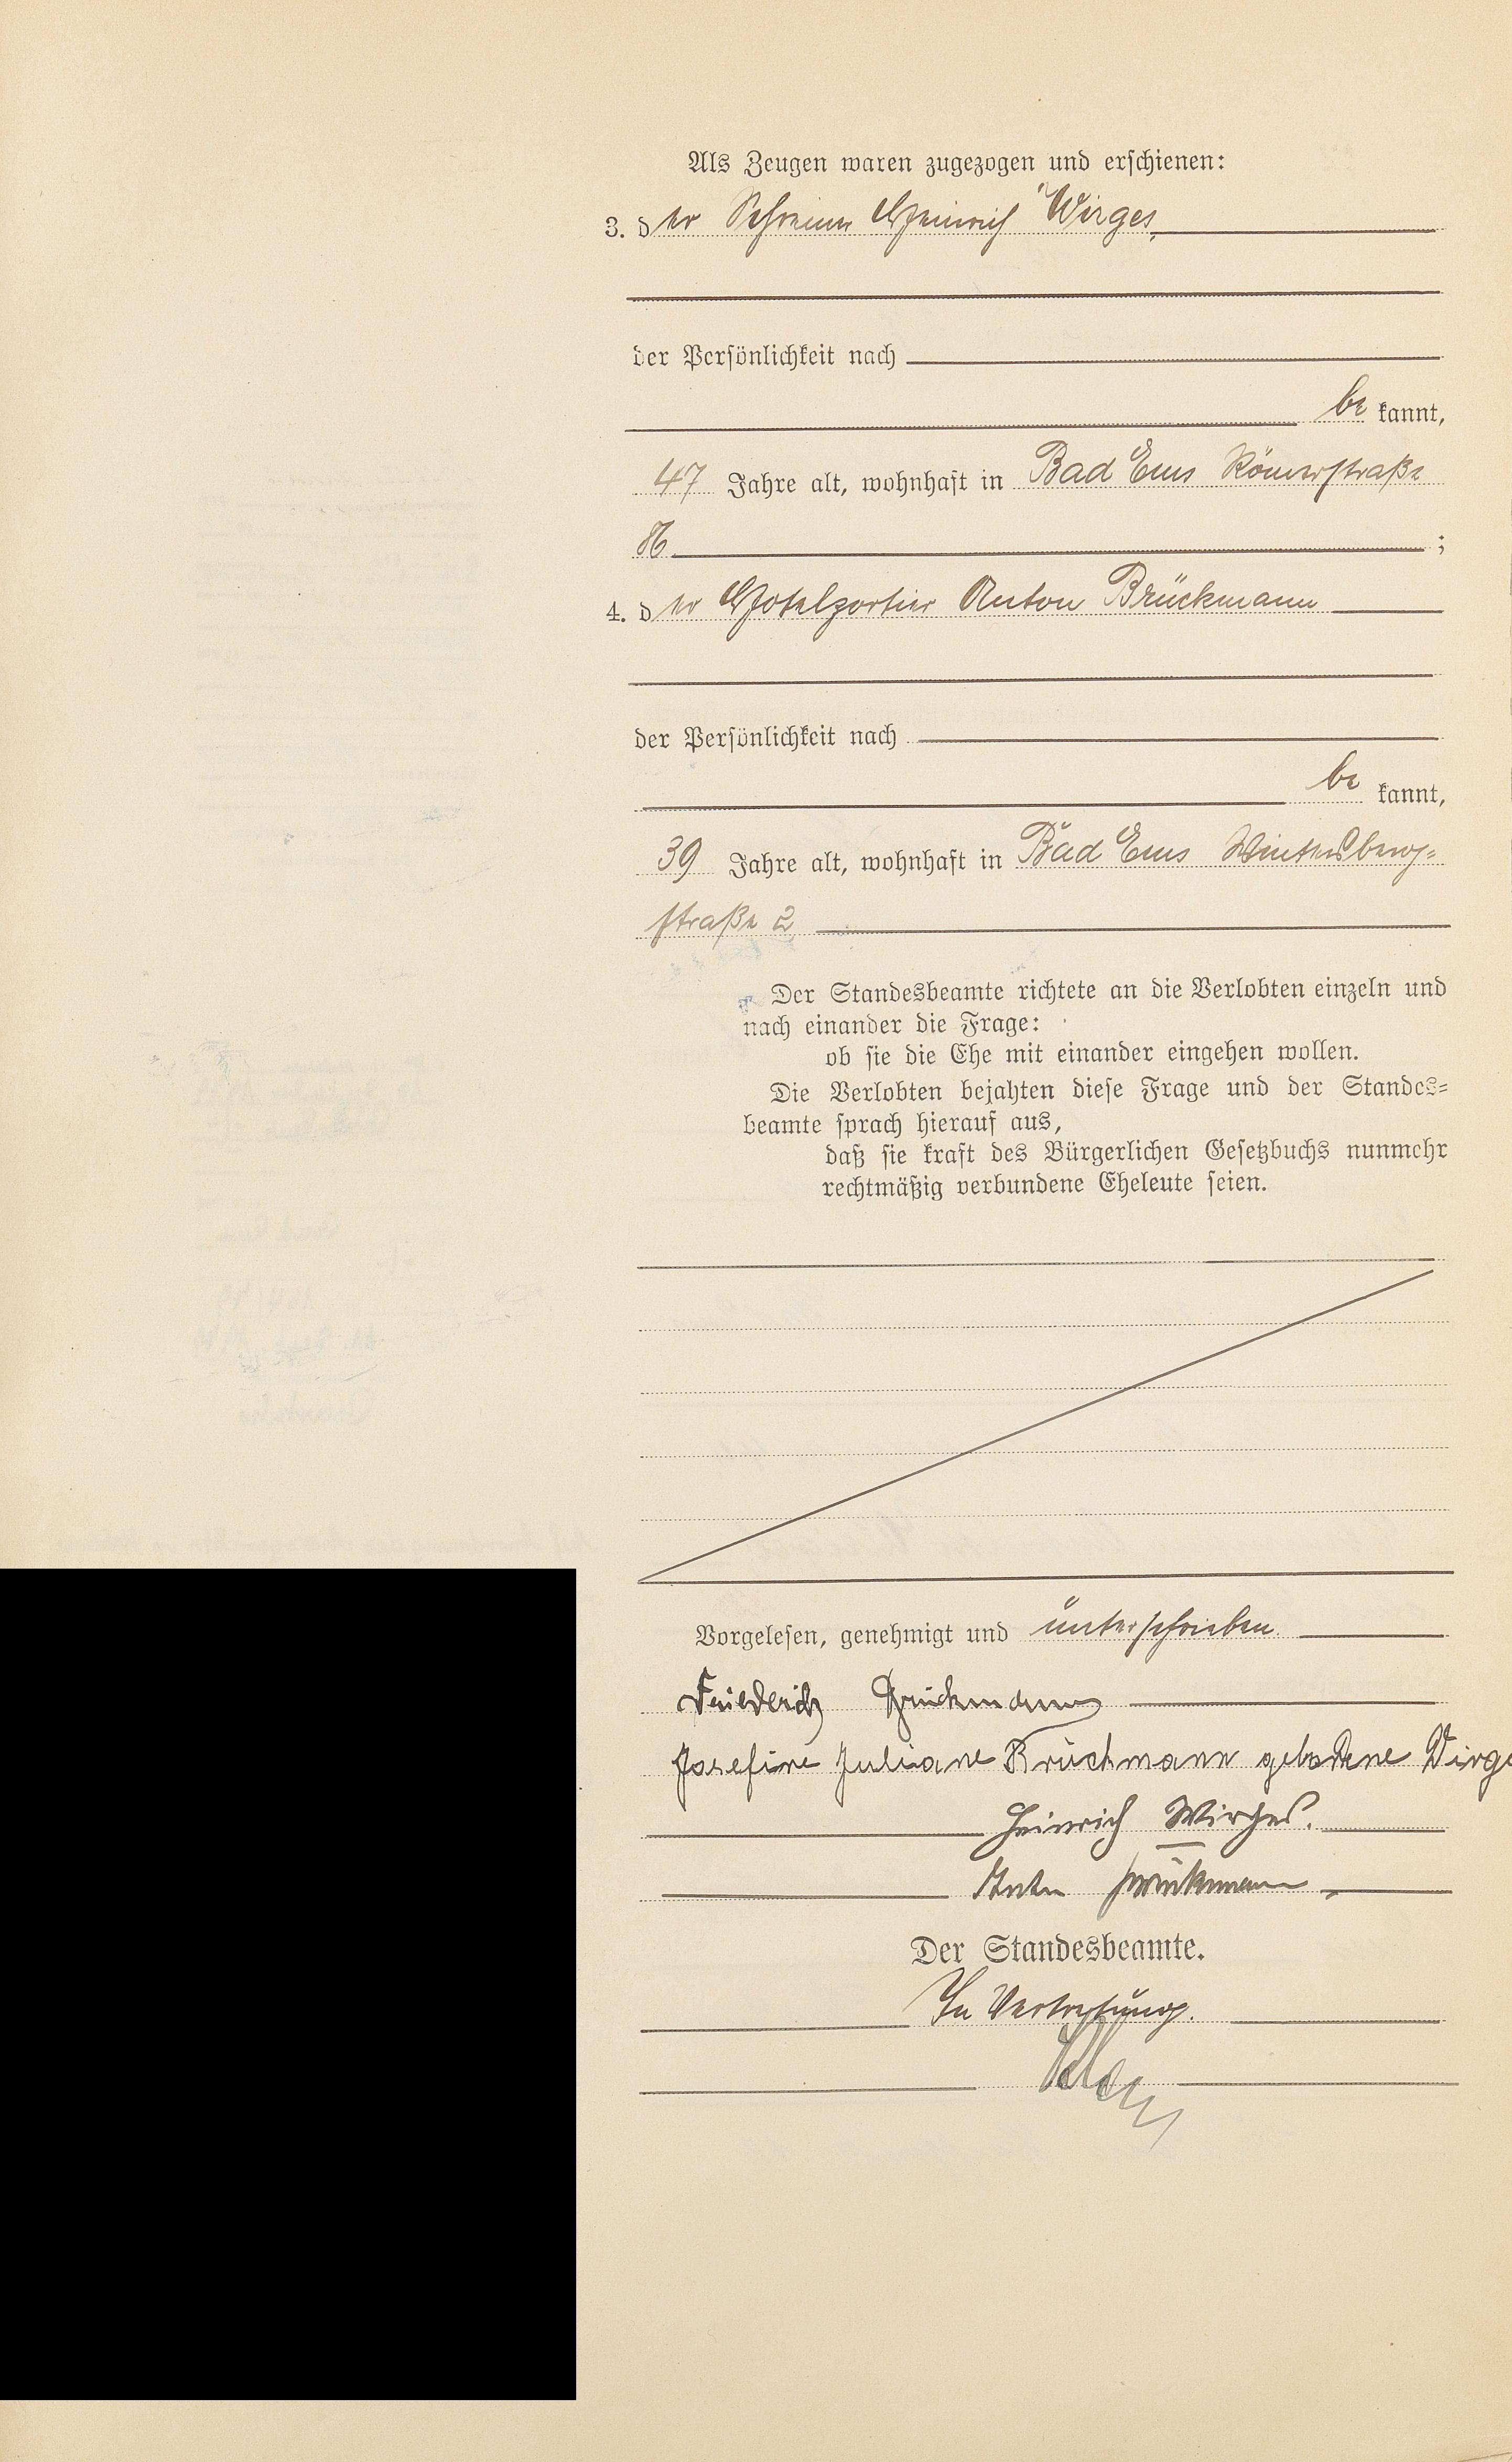 Als Zeugen waren zugezogen und erschienen:
3. der Schreiner Heinrich Wirges,
der Persönlichkeit nach
be kannt,
47 Jahre alt, wohnhaft in Bad Ems Römerstraße
86 ;
4. der Hotelportier Anton Brückmann
der Persönlichkeit nach
be kannt,
39 Jahre alt, wohnhaft in Bad Ems Wintersberg-
straße 2
Der Standesbeamte richtete an die Verlobten einzeln und
nach einander die Frage:
ob sie die Ehe mit einander eingehen wollen.
Die Verlobten bejahten diese Frage und der Standes-
beamte sprach hierauf aus,
daß sie kraft des Bürgerlichen Gesetzbuchs nunmehr
rechtmäßig verbundene Eheleute seien.
Vorgelesen, genehmigt und unterschrieben
Friedrich Brückmann
Josefine Juliane Brückmann geborene Wirge
Heinrich Wirges.
Anton Brückmann
Der Standesbeamte.
In Vertretung.